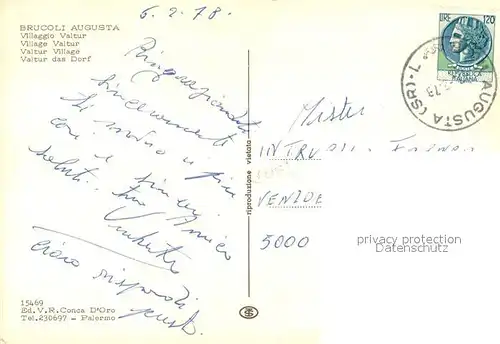 6.2.78.
BRUCOLI AUGUSTA
Villaggio Valtur
Village Valtur
Valtur Village
Valtur das Dorf
LIRE 120
AUGUSTA (SR)
Ringraziando
sinceramente
con i
saluti. tuo Amico
Umberto
ciao rispondi
presto.
riproduzione vietata
Mister
VENIDE
5000
privacy protection
Datenschutz
15469
Ed.V.R.Conca D'Oro
Tel.230697 - Palermo